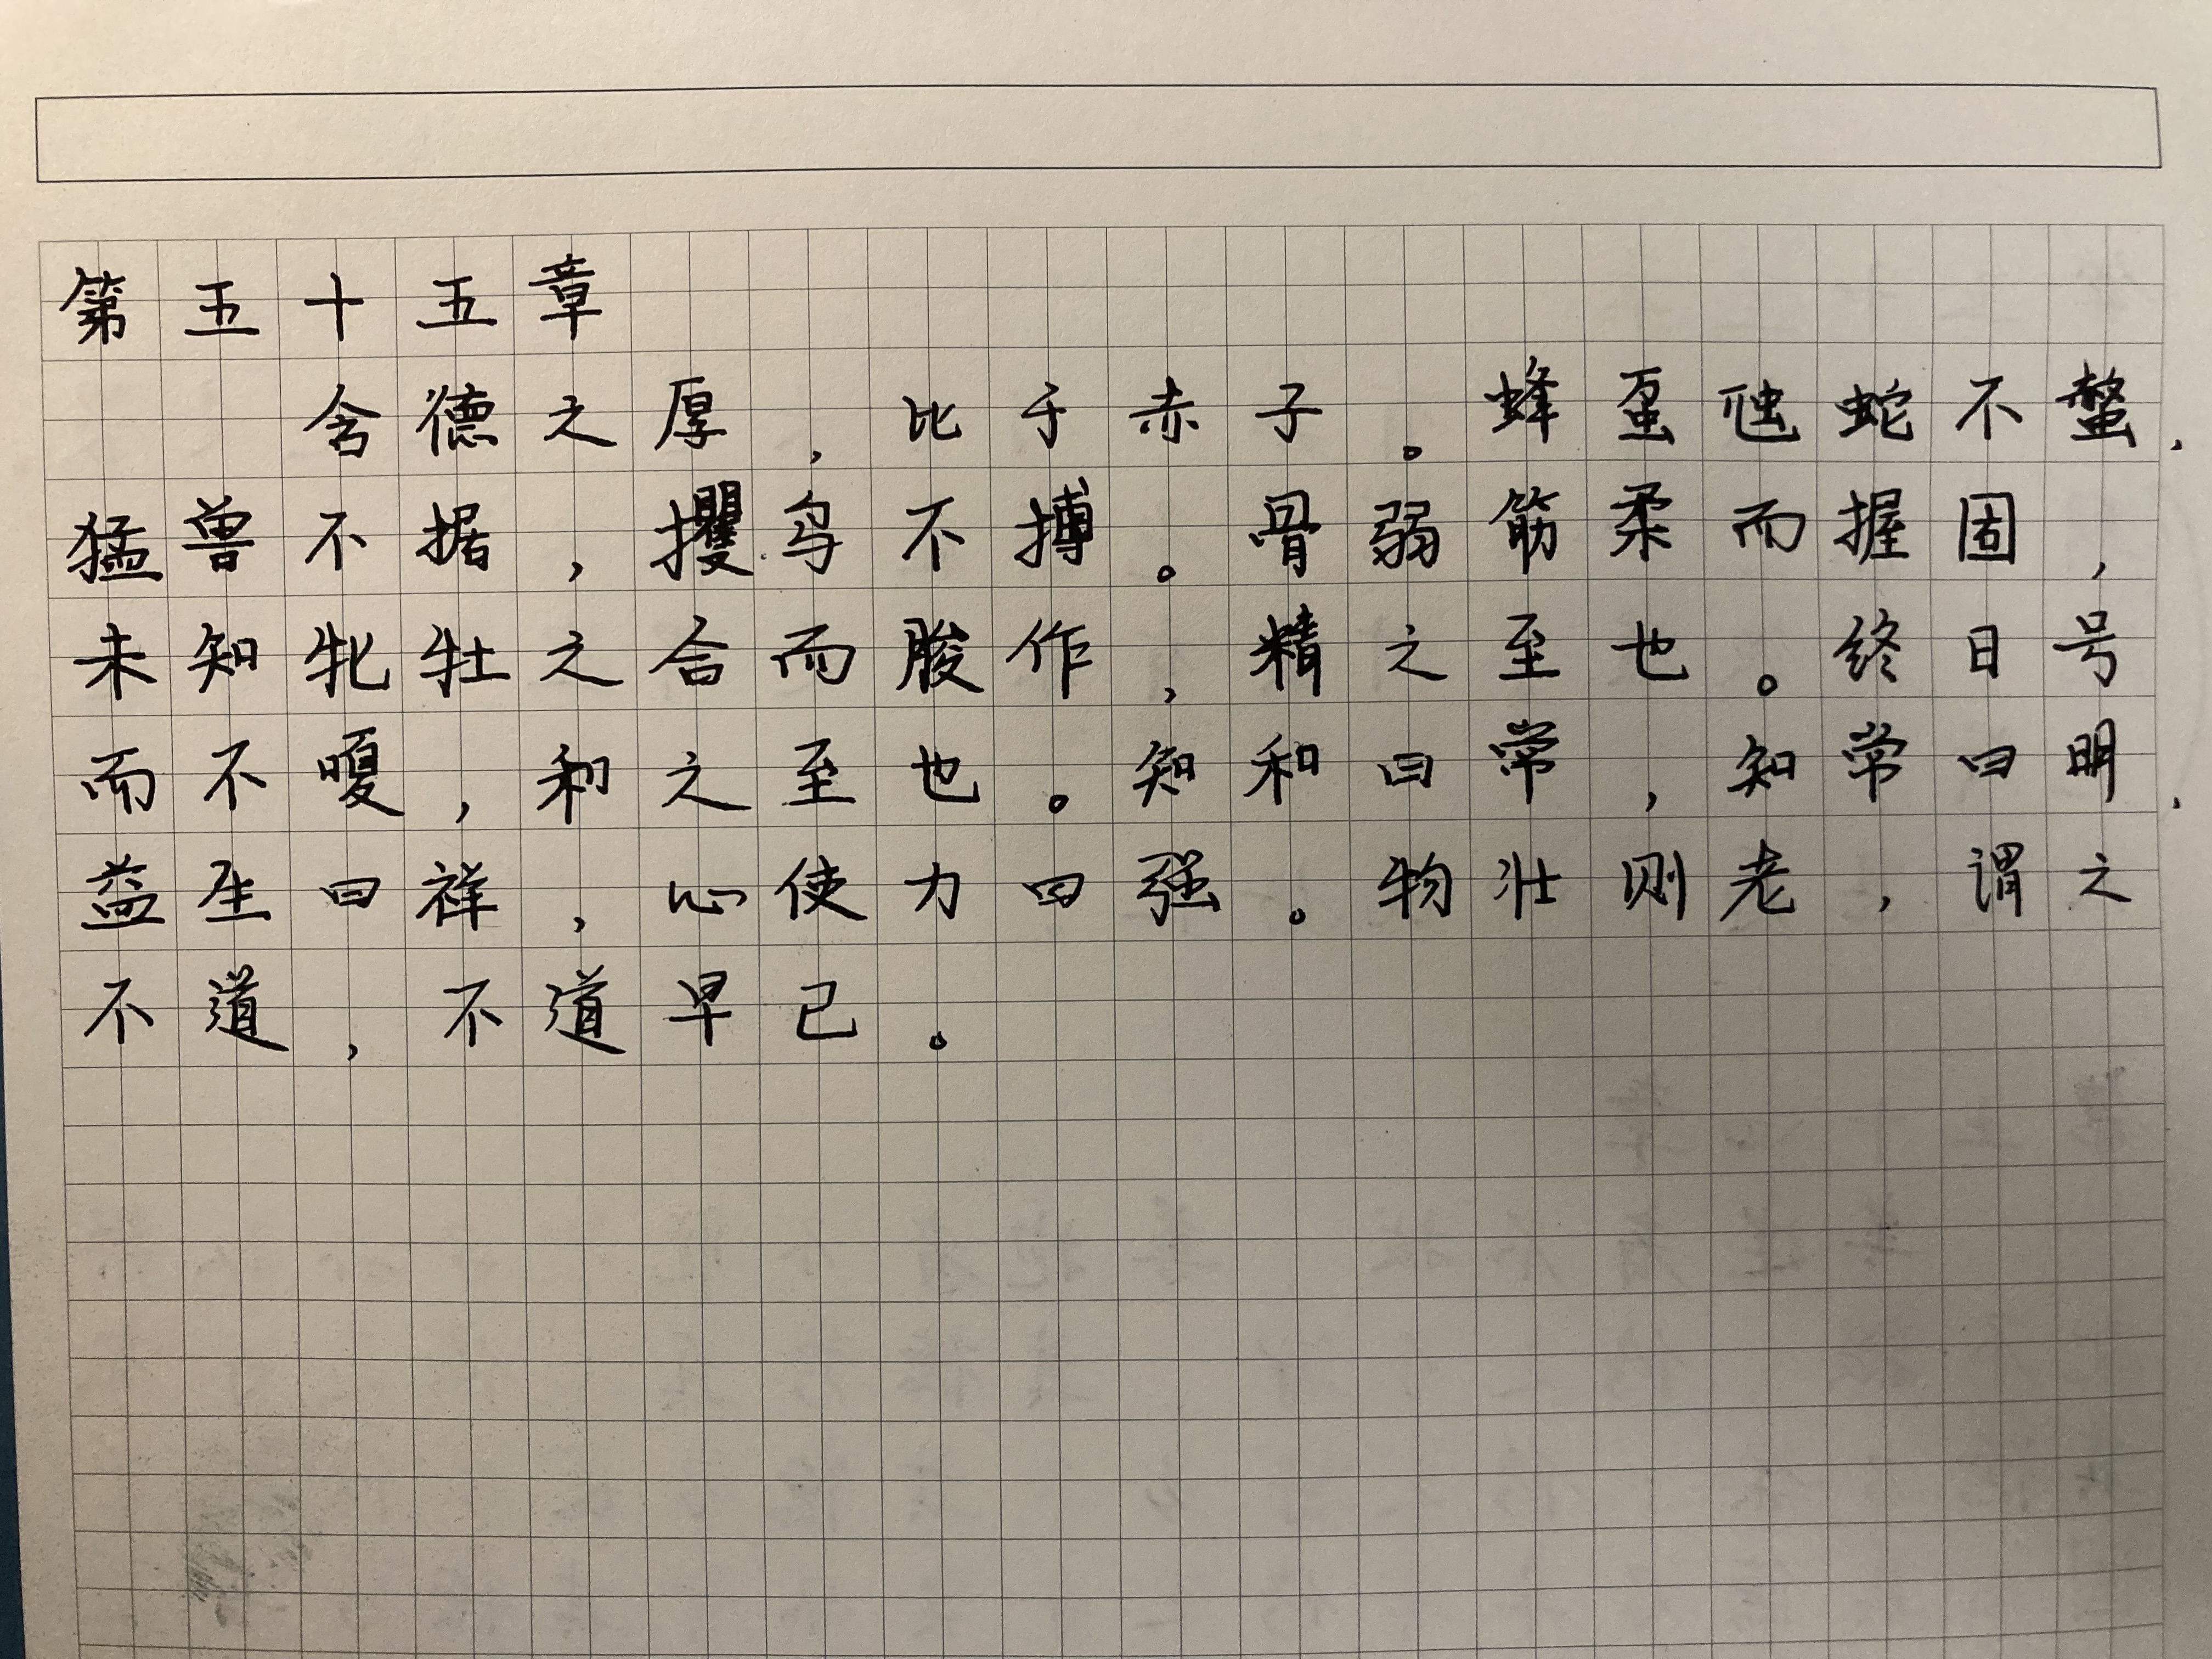 第五十五章
含德之厚，比于赤子。蜂虿虺蛇不螫，
猛兽不据，攫鸟不搏。骨弱筋柔而握固，
未知牝牡之合而朘作，精之至也。终日号
而不嗄，和之至也。知和曰常，知常曰明，
益生曰祥，心使力曰强。物壮则老，谓之
不道，不道早已。